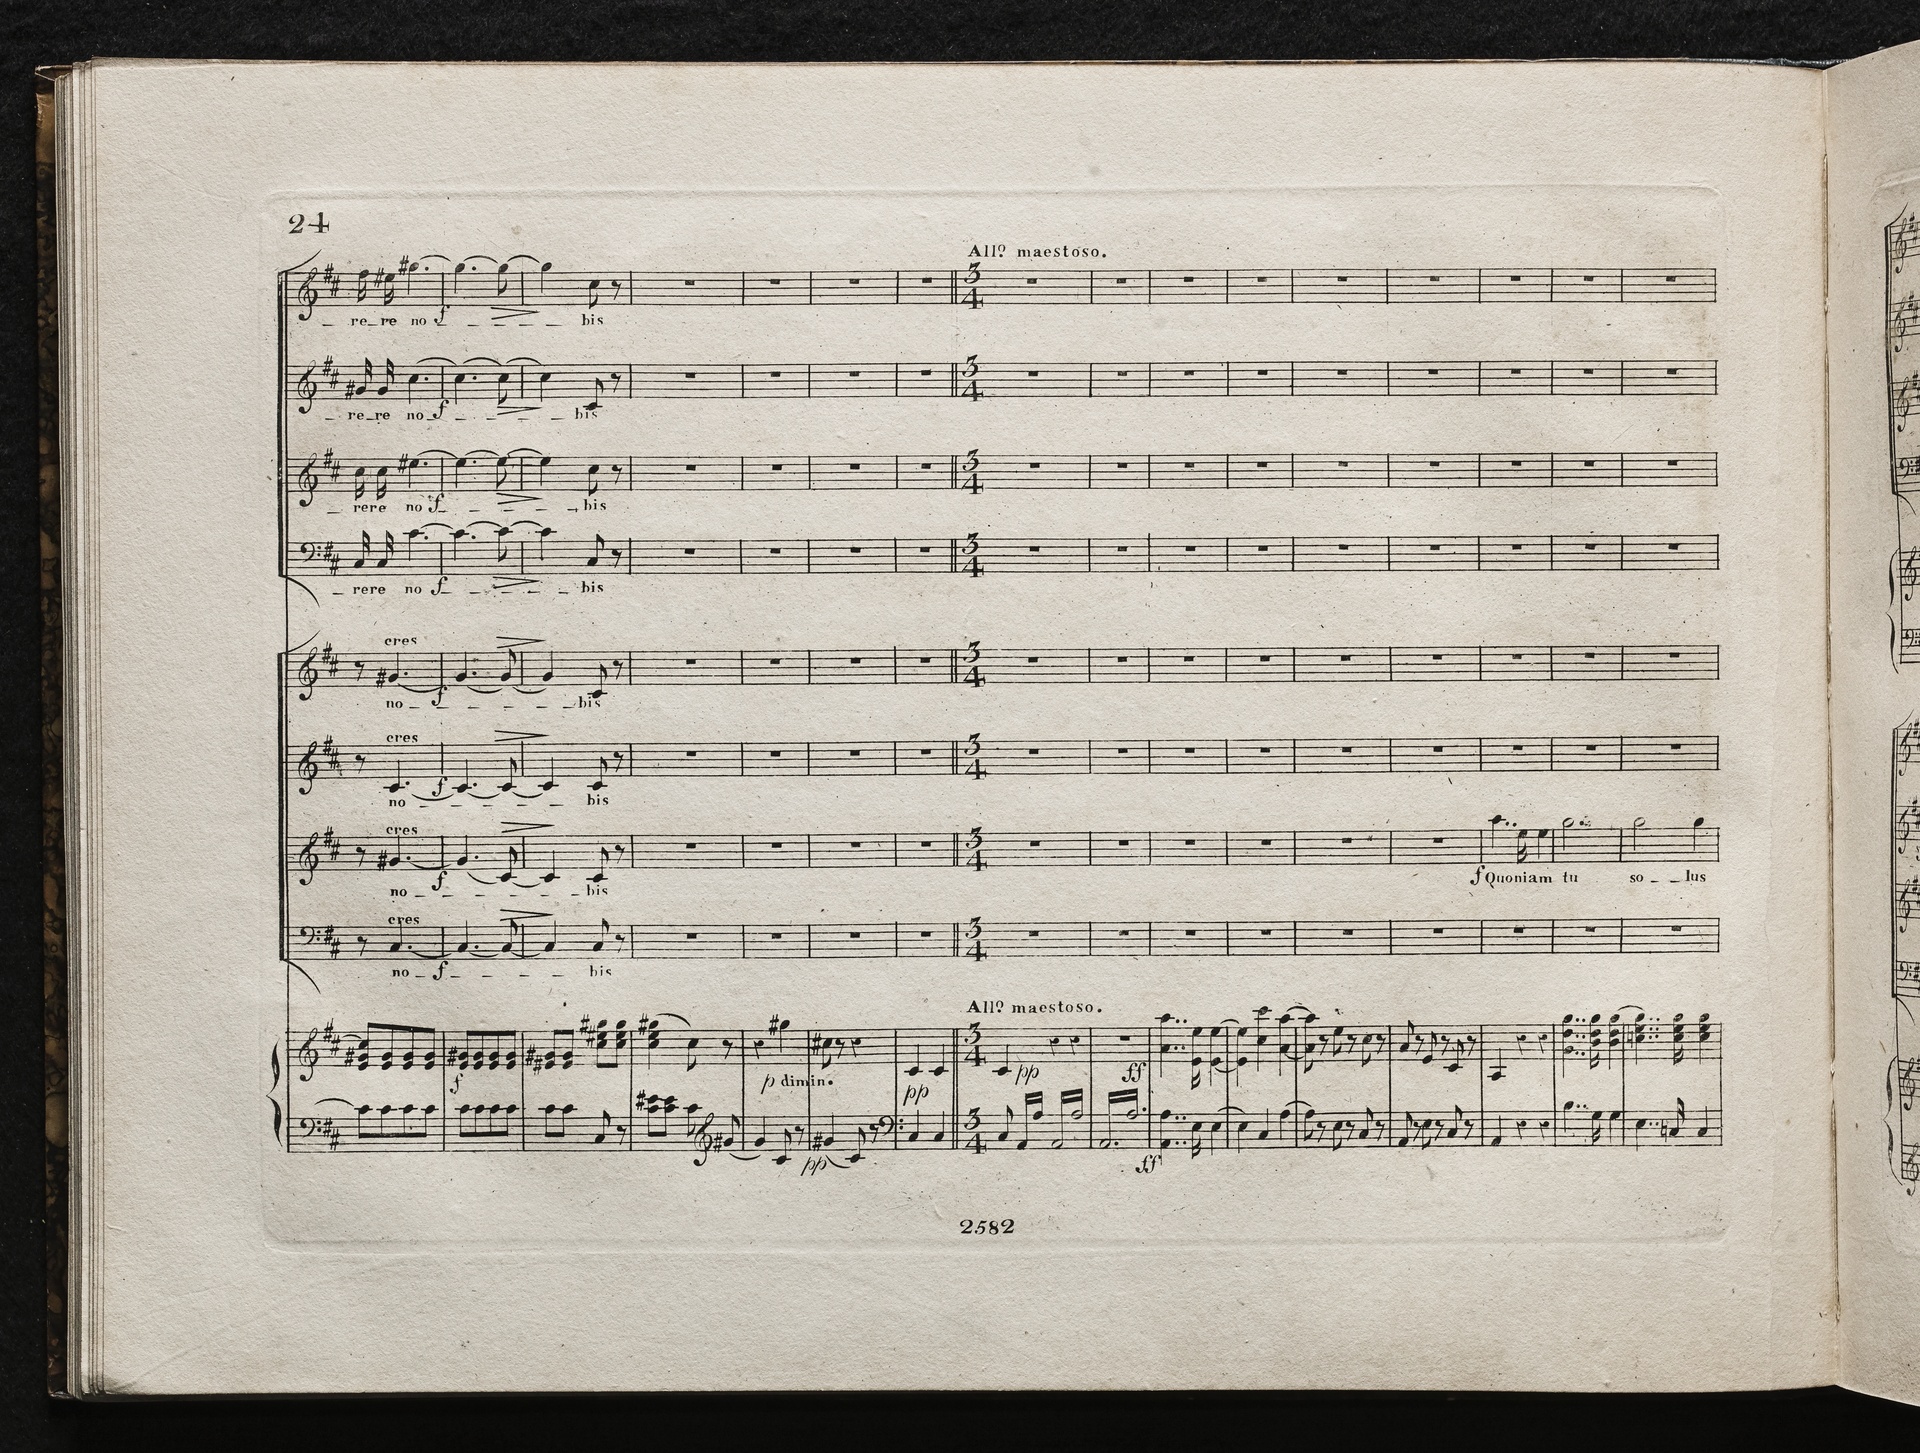 24
Allº maestoso.
3
4
_ re_re no f _ _ _ _ _ bis
3
4
_ re_re no_f _ _ _ _ bis
3
4
_ rere no f_ _ _ _ _ _ bis
3
4
_ rere no f_ _ _ _ _ bis
cres
3
4
no _ f _ _ _ _ _ _ bis
cres
3
4
f
no _ _ _ _ _ bis
cres
3
4
no _ f _ _ _ _ _ bis
f Quoniam tu so _ _ lus
cres
3
4
no _ f _ _ _ _ _ bis
Allº maestoso.
3
4
f p dimin. pp pp ff
3
4
pp ff
2582